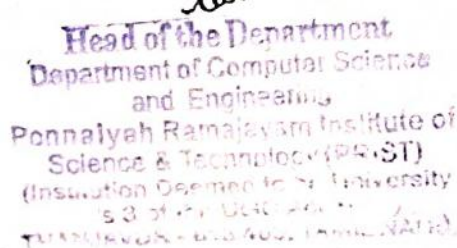 Head of the Department
Department of Computer Science
and Engineering
Ponnaiyah Ramajayam Institute of
Science & Technology (PRIST)
(Institution Deemed to be University
THANJAVUR -